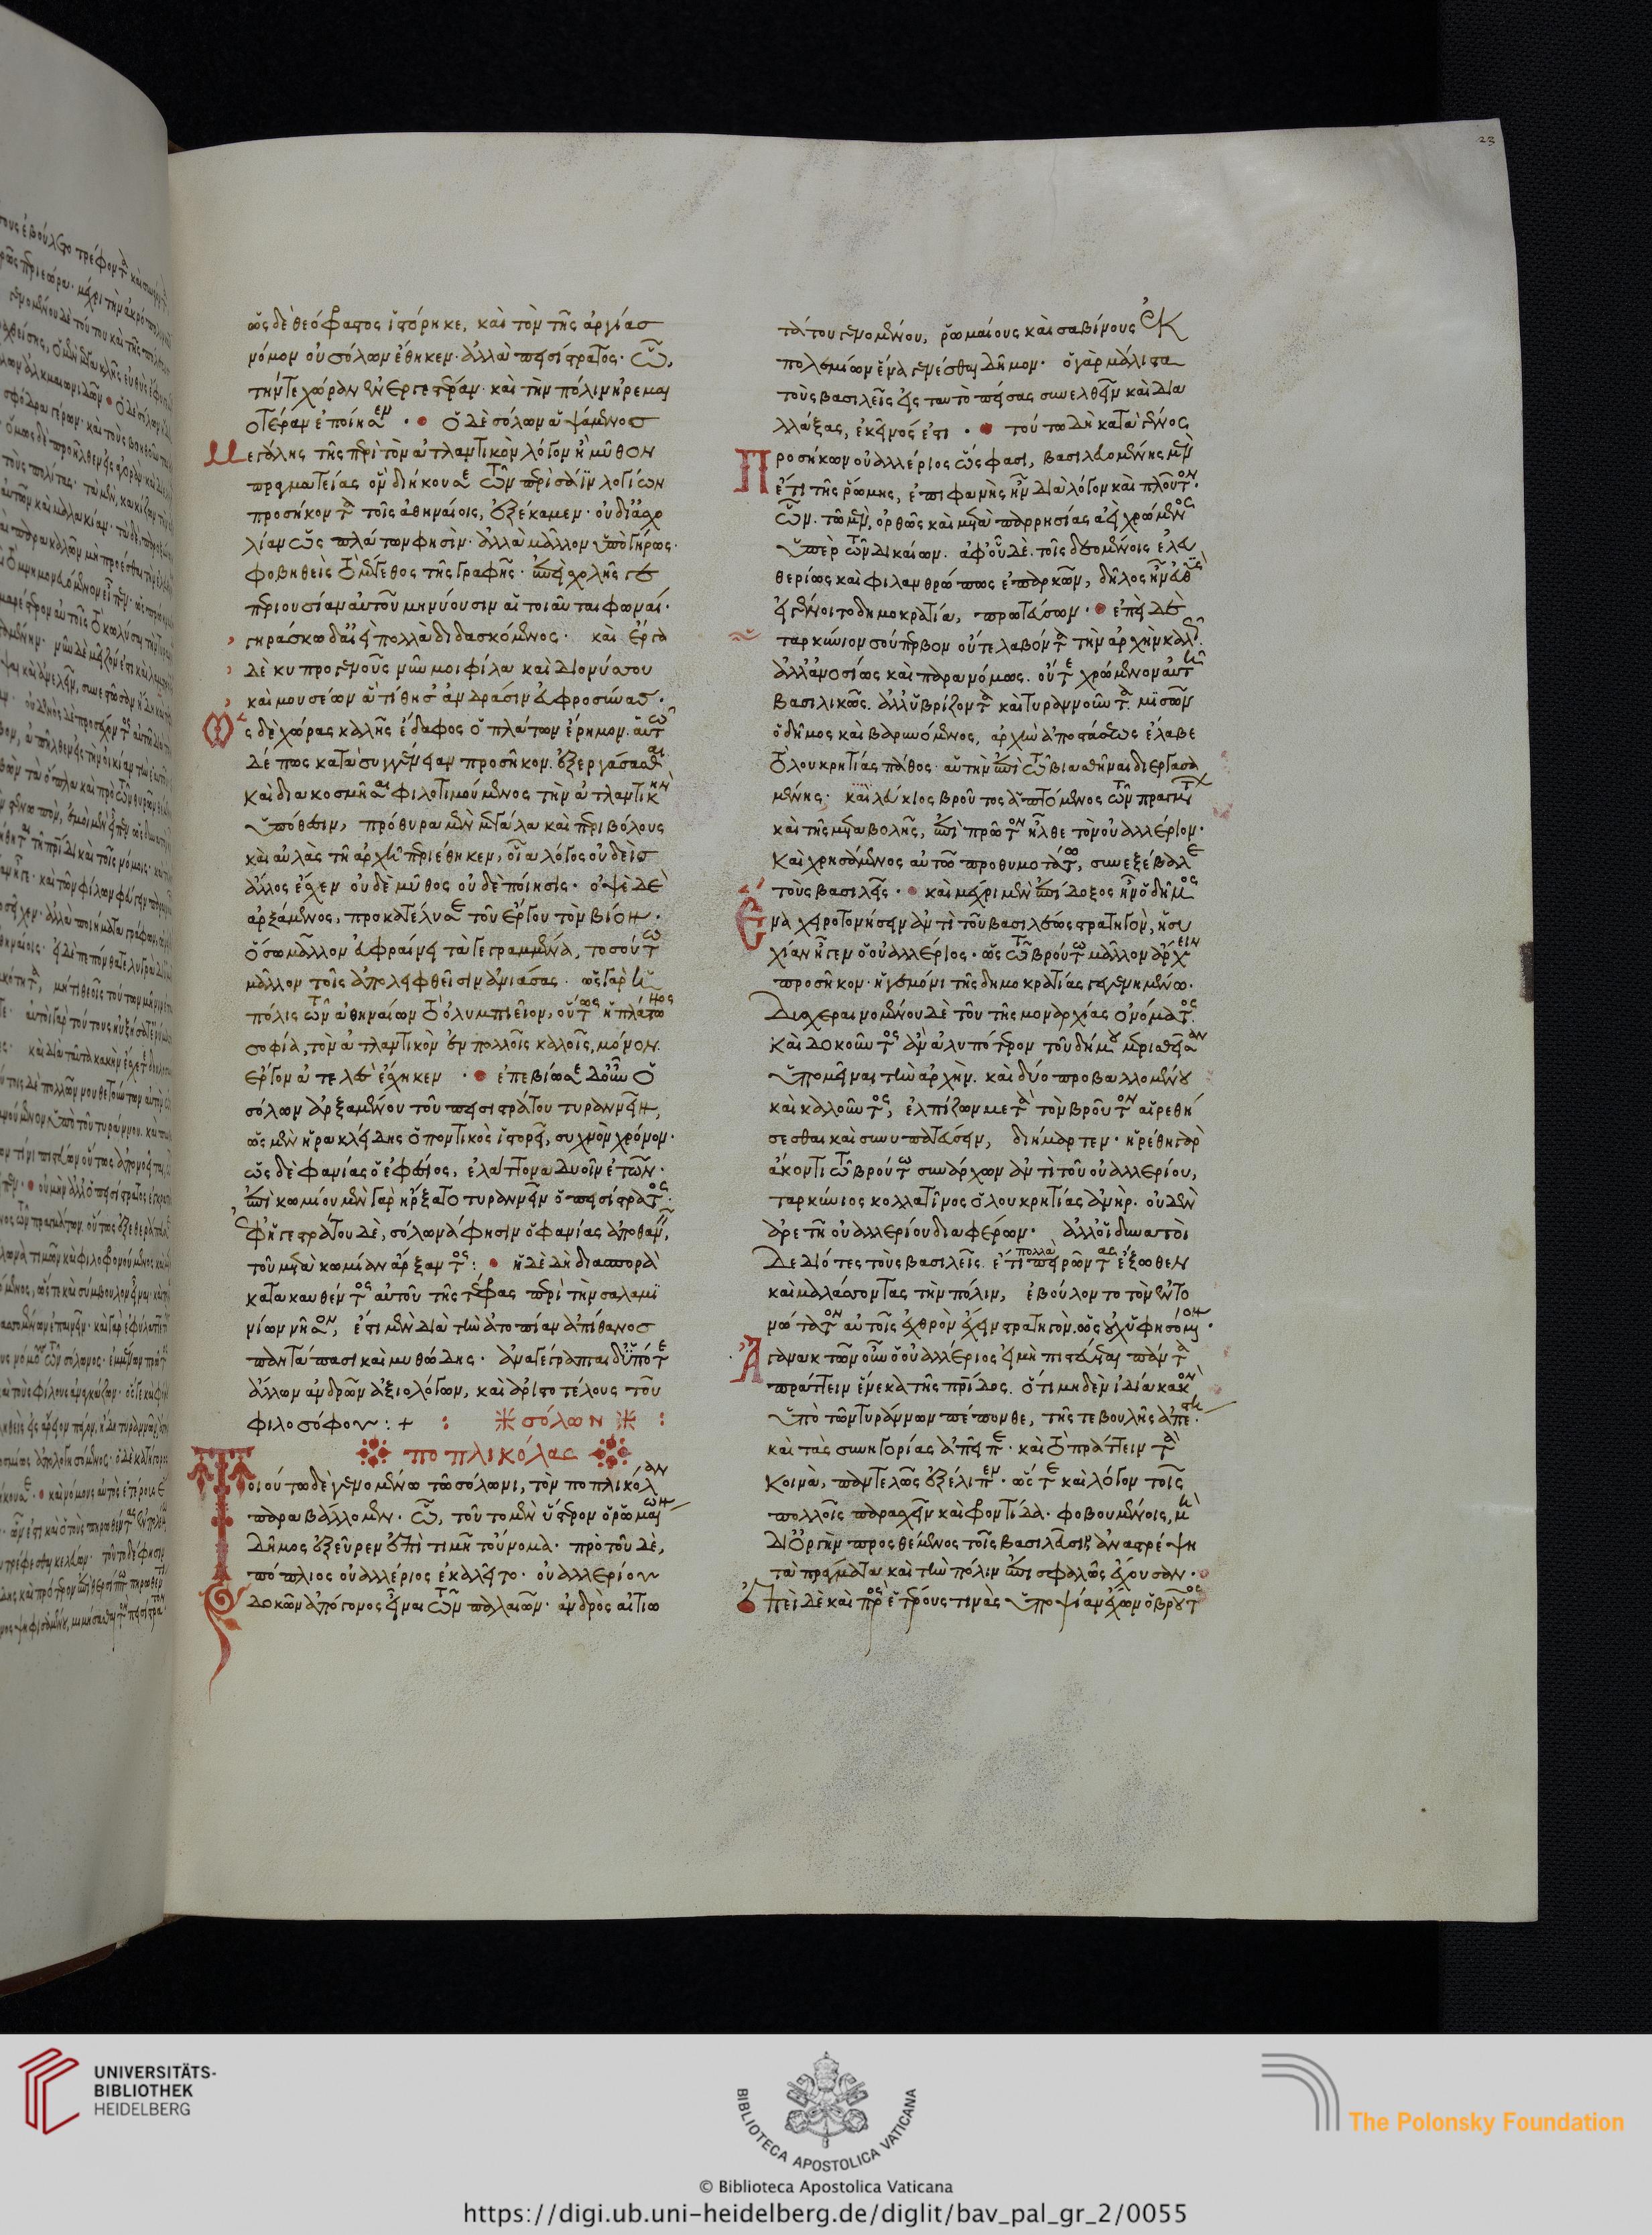 23
ὡς δὲ θεόφραστος ἱστόρηκε, καὶ τὸν τῆς ἀργίας
νόμον οὐ σόλων ἔθηκεν· ἀλλὰ πεισίστρατος· ᾧ,
τήν τε χώραν ἐνεργεστέραν· καὶ τὴν πόλιν ἠρεμαι
οτέραν ἐποίησεν · ὁ δὲ σόλων ἁψάμενος
μεγάλης τῆς περὶ τὸν ἀτλαντικὸν λόγον ἢ μῦθον
πραγματείας ὃν διήκουσε τῶν περὶ σάϊν λογίων
προσήκοντα τοῖς ἀθηναίοις, ἐξέκαμεν· οὐ δι' ἀσχο
λίαν ὡς πλάτων φησὶν· ἀλλὰ μᾶλλον ὑπὸ γήρως·
φοβηθεὶς τὸ μέγεθος τῆς γραφῆς· ἐπεὶ σχολῆς γε
περιουσίαν αὐτοῦ μηνύουσιν αἱ τοιαῦται φωναί·
γηράσκω δ' ἀεὶ πολλὰ διδασκόμενος· καὶ ἔργα
δὲ κυπρογενοῦς νῦν μοι φίλα καὶ διονύσου
καὶ μουσέων ἃ τίθησ' ἀνδράσιν εὐφροσύνας·
ὡς δὲ χώρας καλῆς ἔδαφος ὁ πλάτων ἔρημον. αὐτῷ
δέ πως κατὰ συγγένειαν προσῆκον. ἐξεργάσασθαι
καὶ διακοσμῆσαι φιλοτιμούμενος τὴν ἀτλαντικὴν
ὑπόθεσιν, πρόθυρα μὲν μεγάλα καὶ περιβόλους
καὶ αὐλὰς τῇ ἀρχῇ περιέθηκεν, οἷα λόγος οὐδεὶς
ἄλλος ἔσχεν οὐδὲ μῦθος οὐδὲ ποίησις· ὀψὲ δὲ
ἀρξάμενος, προκατέλυσε τοῦ ἔργου τὸν βίον·
ὅσῳ μᾶλλον εὐφραίνει τὰ γεγραμμένα, τοσούτῳ
μᾶλλον τοῖς ἀπολειφθεῖσιν ἀνιάσας· ὡς γὰρ ἡ
πόλις τῶν ἀθηναίων τὸ ὀλυμπιεῖον, οὕτως ἡ πλάτωνος
σοφία, τὸν ἀτλαντικὸν ἐν πολλοῖς καλοῖς, μόνον
ἔργον ἀτελὲς ἔσχηκεν · ἐπεβίωσε δ' οὖν ὁ
σόλων ἀρξαμένου τοῦ πεισιστράτου τυραννεῖν,
ὡς μὲν ἡρακλείδης ὁ ποντικὸς ἱστορεῖ, συχνὸν χρόνον·
ὡς δὲ φανίας ὁ ἐφέσιος, ἐλάττονα δυοῖν ἐτῶν·
ἐπὶ κωμίου μὲν γὰρ ἤρξατο τυραννεῖν ὁ πεισίστρατος·
ἐφ' ἡγεστράτου δὲ, σόλωνά φησιν ὁ φανίας ἀποθανεῖν,
τοῦ μετὰ κωμίαν ἄρξαντος: ἡ δὲ δὴ διασπορὰ
κατακαυθέντος αὐτοῦ τῆς τέφρας περὶ τὴν σαλαμι
νίων νῆσον, ἔστι μὲν διὰ τὴν ἀτοπίαν ἀπίθανος
παντάπασι καὶ μυθώδης· ἀναγέγραπται δ' ὑπό τε
ἄλλων ἀνδρῶν ἀξιολόγων, καὶ ἀριστοτέλους τοῦ
φιλοσόφου :+ : σόλων :
ποπλικόλας
τοιούτῳ δὲ γενομένῳ τῷ σόλωνι, τὸν ποπλικόλαν
παραβάλλομεν· ᾧ, τοῦτο μὲν ὕστερον ὁ ῥωμαίων
δῆμος ἐξεῦρεν ἐπὶ τιμῇ τοὔνομα· πρὸ τοῦ δὲ,
πόπλιος οὐαλλέριος ἐκαλεῖτο· οὐαλλερίου
δοκῶν ἀπόγονος εἶναι τῶν παλαιῶν· ἀνδρὸς αἰτιω
τάτου γενομένου, ῥωμαίους καὶ σαβίνους ἐκ
πολεμίων ἕνα γενέσθαι δῆμον· ὁ γὰρ μάλιστα
τοὺς βασιλεῖς εἰς ταυτὸ πείσας συνελθεῖν καὶ δια
λλάξας, ἐκεῖνός ἐστι · τούτῳ δὴ κατὰ γένος
προσήκων οὐαλλέριος ὥς φασι, βασιλευομένης μὲν
ἔτι τῆς ῥώμης, ἐπιφανὴς ἦν διὰ λόγον καὶ πλοῦτον·
ὧν. τῷ μὲν, ὀρθῶς καὶ μετὰ παρρησίας ἀεὶ χρώμενος
ὑπὲρ τῶν δικαίων. ἀφ' οὗ δὲ. τοῖς δεομένοις ἐλευ
θερίως καὶ φιλανθρώπως ἐπαρκῶν, δῆλος ἦν εὐθὺς
εἰ γένοιτο δημοκρατία, πρωτεύσων· ἐπεὶ δὲ
ταρκύνιον σούπερβον οὔτε λαβόντα τὴν ἀρχὴν καλῶς.
ἀλλ' ἀνοσίως καὶ παρανόμως. οὔτε χρώμενον αὐτῇ
βασιλικῶς. ἀλλ' ὑβρίζοντα καὶ τυραννοῦντα. μισῶν
ὁ δῆμος καὶ βαρυνόμενος, ἀρχὴν ἀποστάσεως ἔλαβε
τὸ λουκρητίας πάθος· αὑτὴν ἐπὶ τῷ βιασθῆναι διεργασα
μένης· καὶ λεύκιος βροῦτος ἁπτόμενος τῶν πραγμάτων
καὶ τῆς μεταβολῆς, ἐπὶ πρῶτον ἦλθε τὸν οὐαλλέριον·
καὶ χρησάμενος αὐτῷ προθυμοτάτῳ, συνεξέβαλε
τοὺς βασιλεῖς · καὶ μέχρι μὲν ἐπίδοξος ἦν ὁ δῆμος
ἕνα χειροτονήσειν ἀντὶ τοῦ βασιλέως στρατηγὸν, ἡσυ
χίαν ἦγεν ὁ οὐαλλέριος· ὡς τῷ βρούτῳ μᾶλλον ἄρχειν
προσῆκον· ἡγεμόνι τῆς δημοκρατίας γεγενημένῳ.
δυσχεραινομένου δὲ τοῦ τῆς μοναρχίας ὀνόματος.
καὶ δοκοῦντος ἂν ἀλυπότερον τοῦ δήμου μερισθεῖσαν
ὑπομεῖναι τὴν ἀρχὴν. καὶ δύο προβαλλομένου
καὶ καλοῦντος, ἐλπίζων μετὰ τὸν βροῦτον αἱρεθή
σεσθαι καὶ συνυπατεύσειν, διήμαρτεν· ᾑρέθη γὰρ
ἄκοντι τῷ βρούτῳ συνάρχων ἀντὶ τοῦ οὐαλλερίου,
ταρκύνιος κολλατῖνος ὁ λουκρητίας ἀνὴρ. οὐδὲν
ἀρετῇ οὐαλλερίου διαφέρων· ἀλλ' οἱ δυνατοὶ
δεδιότες τοὺς βασιλεῖς ἔτι πολλὰ πειρῶντας ἔξωθεν
καὶ μαλάσσοντας τὴν πόλιν, ἐβούλοντο τὸν ἐντο
νώτατον αὐτοῖς ἐχθρὸν ἔχειν στρατηγὸν. ὡς οὐχ ὑφησόμενον·
ἀγανακτῶν οὖν ὁ οὐαλλέριος εἰ μὴ πιστεύεται πάντα
πράττειν ἕνεκα τῆς πατρίδος. ὅτι μηδὲν ἰδίᾳ κακὸν
ὑπὸ τῶν τυράννων πέπονθε, τῆς τε βουλῆς ἀπέστη.
καὶ τὰς συνηγορίας ἀπεῖπε· καὶ τὸ πράττειν τὰ
κοινὰ, παντελῶς ἐξέλιπεν· ὥστε καὶ λόγον τοῖς
πολλοῖς παρασχεῖν καὶ φροντίδα· φοβουμένοις, μὴ
δι' ὀργὴν προσθέμενος τοῖς βασιλεῦσιν ἀνατρέψῃ
τὰ πράγματα καὶ τὴν πόλιν ἐπισφαλῶς ἔχουσαν·
ἐπεὶ δὲ καὶ πρὸς ἑτέρους τινὰς ὑποψίαν ἔχων ὁ βροῦτος
UNIVERSITÄTS-
BIBLIOTHEK
HEIDELBERG
BIBLIOTECA APOSTOLICA VATICANA
The Polonsky Foundation
© Biblioteca Apostolica Vaticana
https://digi.ub.uni-heidelberg.de/diglit/bav_pal_gr_2/0055